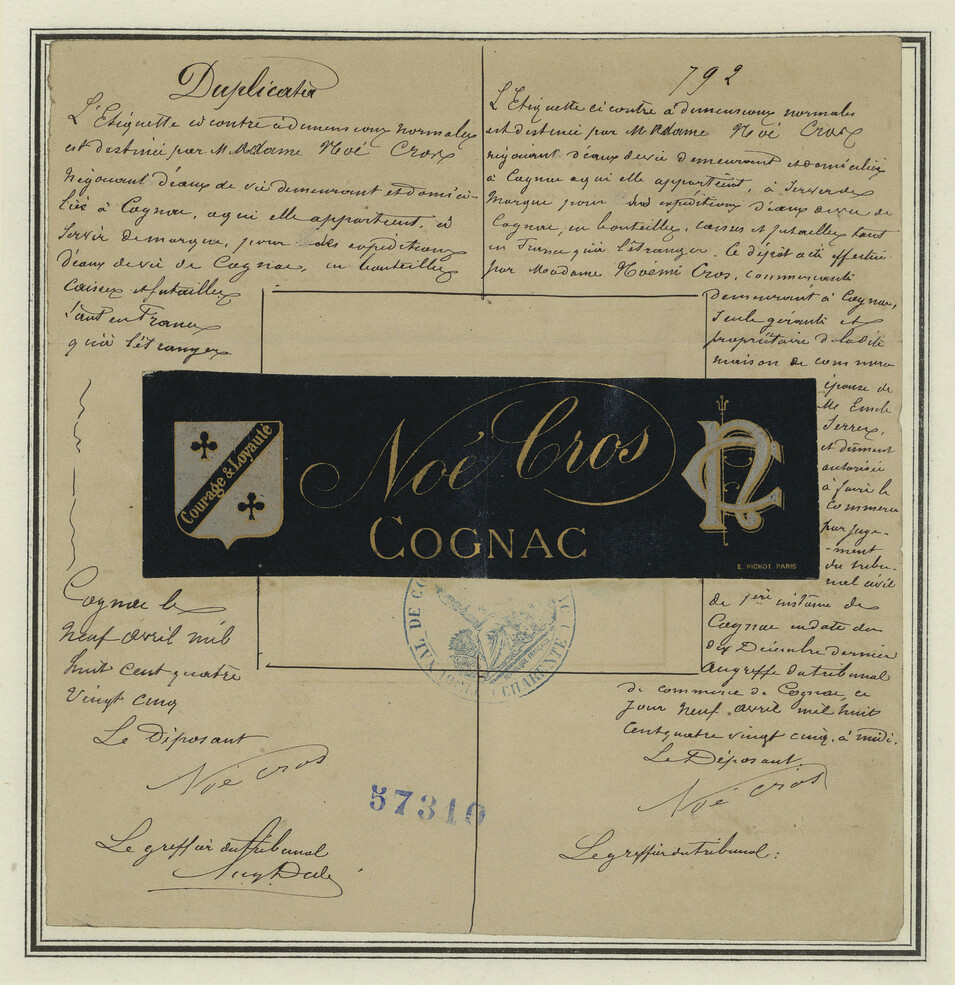 Duplicata
L'Etiquette ci contre à dimensions normales
est destinée par Madame Noé Cros
Négociant d'eaux de vie demeurant et domici-
lié à Cognac, a qui elle appartient, à
Servir de marque, pour des expéditions
d'eaux de vie de Cognac, en bouteilles
Caisses et futailles
tant en France
qu'à l'étranger
Cognac le
neuf avril mil
huit cent quatre
vingt cinq
Le Déposant
Noé Cros
Le greffier du tribunal
792
L'Etiquette ci contre a dimensions normales
est destinée par Madame Noé Cros
négociant d'eaux de vie demeurant et domicilié
à Cognac a qui elle appartient, à Servir de
Marque pour des expéditions d'eaux de vie de
Cognac, en bouteilles, caisses et futailles tant
en France qu'à l'étranger. Ce dépôt a été effectué
par Madame Noémi Cros, commerçante
demeurant à Cognac,
Seule gérante et
propriétaire de la dite
maison de commerce
épouse de
Emile
et dûment
autorisée
à faire le
Commerce
par juge-
ment
du tribu-
nal civil
de 1ère instance de
Cognac en date du
dix Décembre dernier
au greffe du tribunal
de commerce de Cognac, ce
jour neuf avril mil huit
cent quatre vingt cinq, à midi.
Le Déposant:
Noé Cros
Le greffier du tribunal:
Courage & Loyauté
Noé Cros
COGNAC
E. PICHOT PARIS
CHARENTE
57310